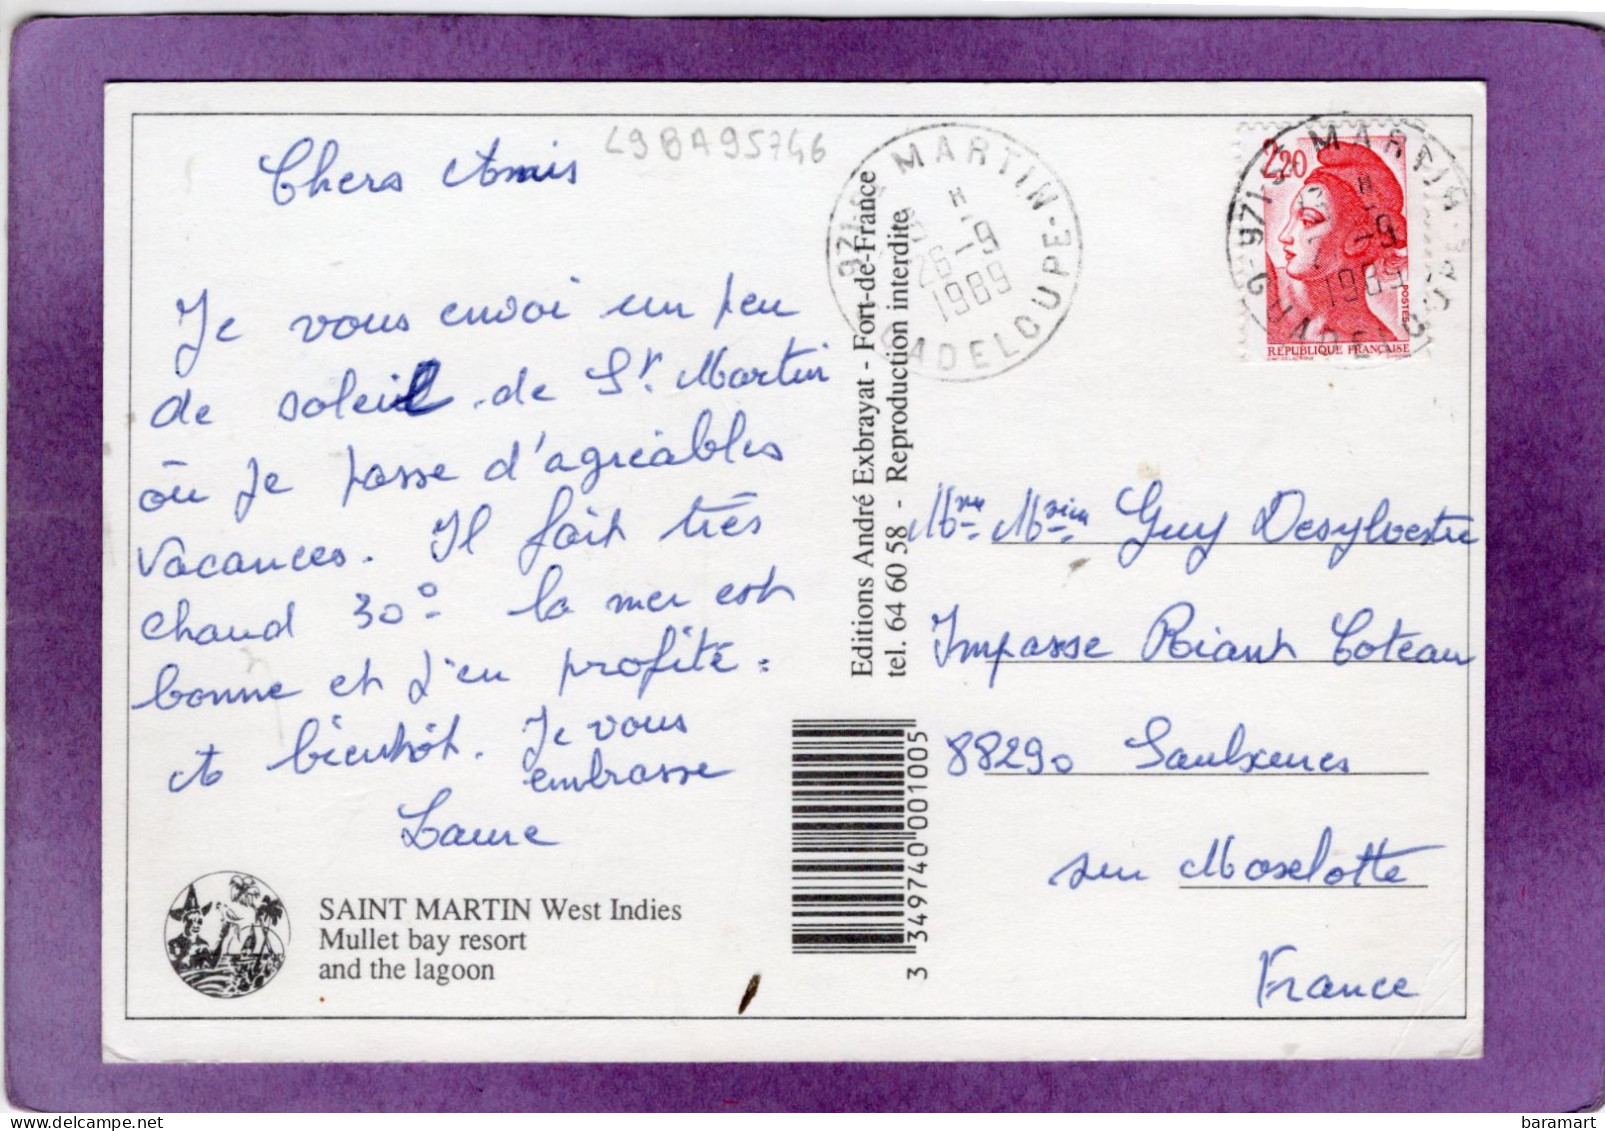 L9BA95746
Chers Amis
Je vous envoi un peu
de soleil de St Martin
où je passe d'agréables
vacances. Il fait très
chaud 30° la mer est
bonne et j'en profite.
A bientôt. Je vous
embrasse
Laure
SAINT MARTIN West Indies
Mullet bay resort
and the lagoon
Editions André Exbrayat - Fort-de-France
tel. 64 60 58 - Reproduction interdite
3 349740 001005
MARTIN
26-9
1989
GUADELOUPE
2,20
POSTES
REPUBLIQUE FRANÇAISE
MARTIN
1989
Guy Desylvestre
Impasse Riant Coteau
88290 Saulxures
sur Moselotte
France
baramart